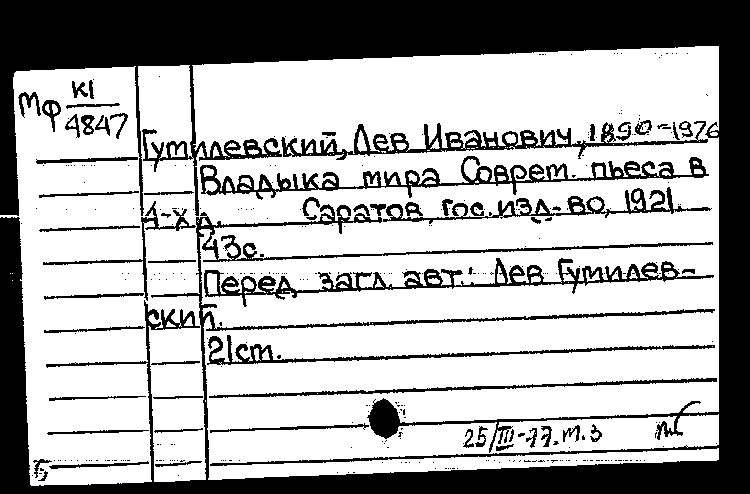 Мф К1
4847
Гумилевский, Лев Иванович, 1890-1976
Владыка мира Соврет. пьеса в
4-х д. Саратов, Гос. изд-во, 1921.
43с.
Перед загл. авт.: Лев Гумилев-
ский.
21ст.
25/III-77. т.з